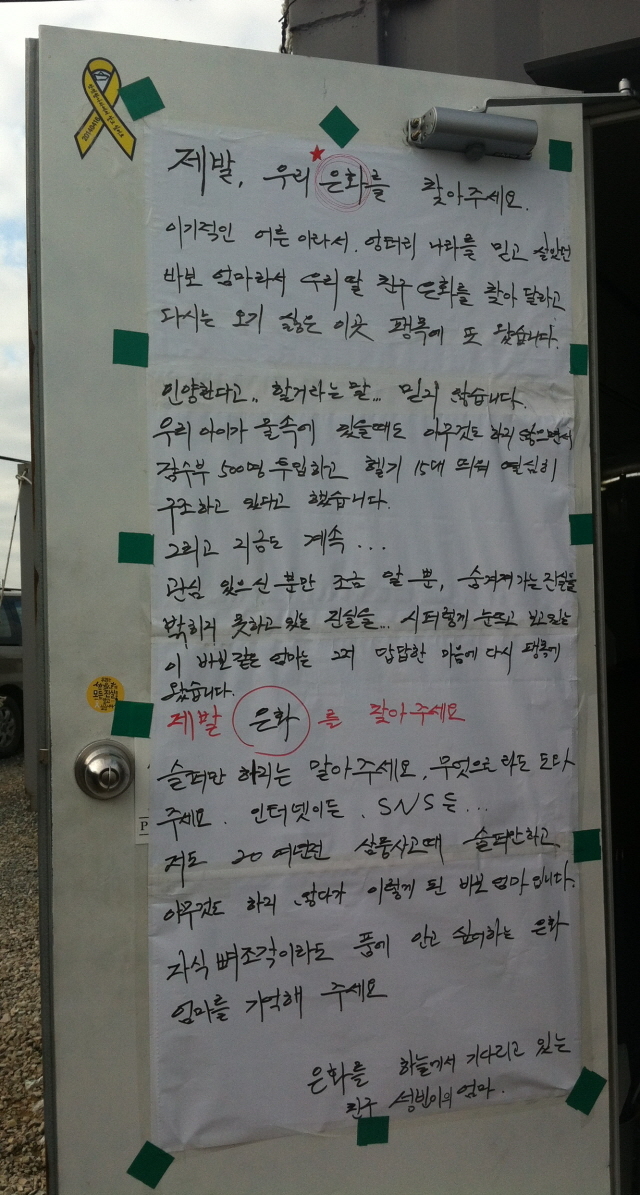 제발, 우리 은화를 찾아주세요.
이기적인 어른이라서, 엉터리 나라를 믿고 살았던
바보 엄마라서 우리딸 친구 은화를 찾아 달라고
다시는 오기 싫은 이곳 팽목에 또 왔습니다.
인양한다고.. 할거라는 말... 믿지 않습니다.
우리 아이가 물속에 있을때도 아무것도 하지 않으면서
잠수부 500명 투입하고 헬기 15대 띄워 열심히
구조하고 있다고 했습니다.
그리고 지금도 계속...
관심 있으신 분만 조금 알 뿐, 숨겨져가는 진실을
밝히지 못하고 있는 진실을... 시퍼렇게 눈뜨고 보고있는
이 바보같은 엄마는 그저 답답한 마음에 다시 팽목에
왔습니다.
제발 은화를 찾아주세요
슬퍼만 하지는 말아주세요. 무엇으로라도 도와
주세요. 인터넷이든. SNS든...
저도 20여년전 삼풍사고때 슬퍼만하고
아무것도 하지 않다가 이렇게 된 바보 엄마입니다.
자식 뼈조각이라도 품에 안고 싶어하는 은화
엄마를 기억해 주세요
은화를 하늘에서 기다리고 있는
친구 성빈이의 엄마.
P